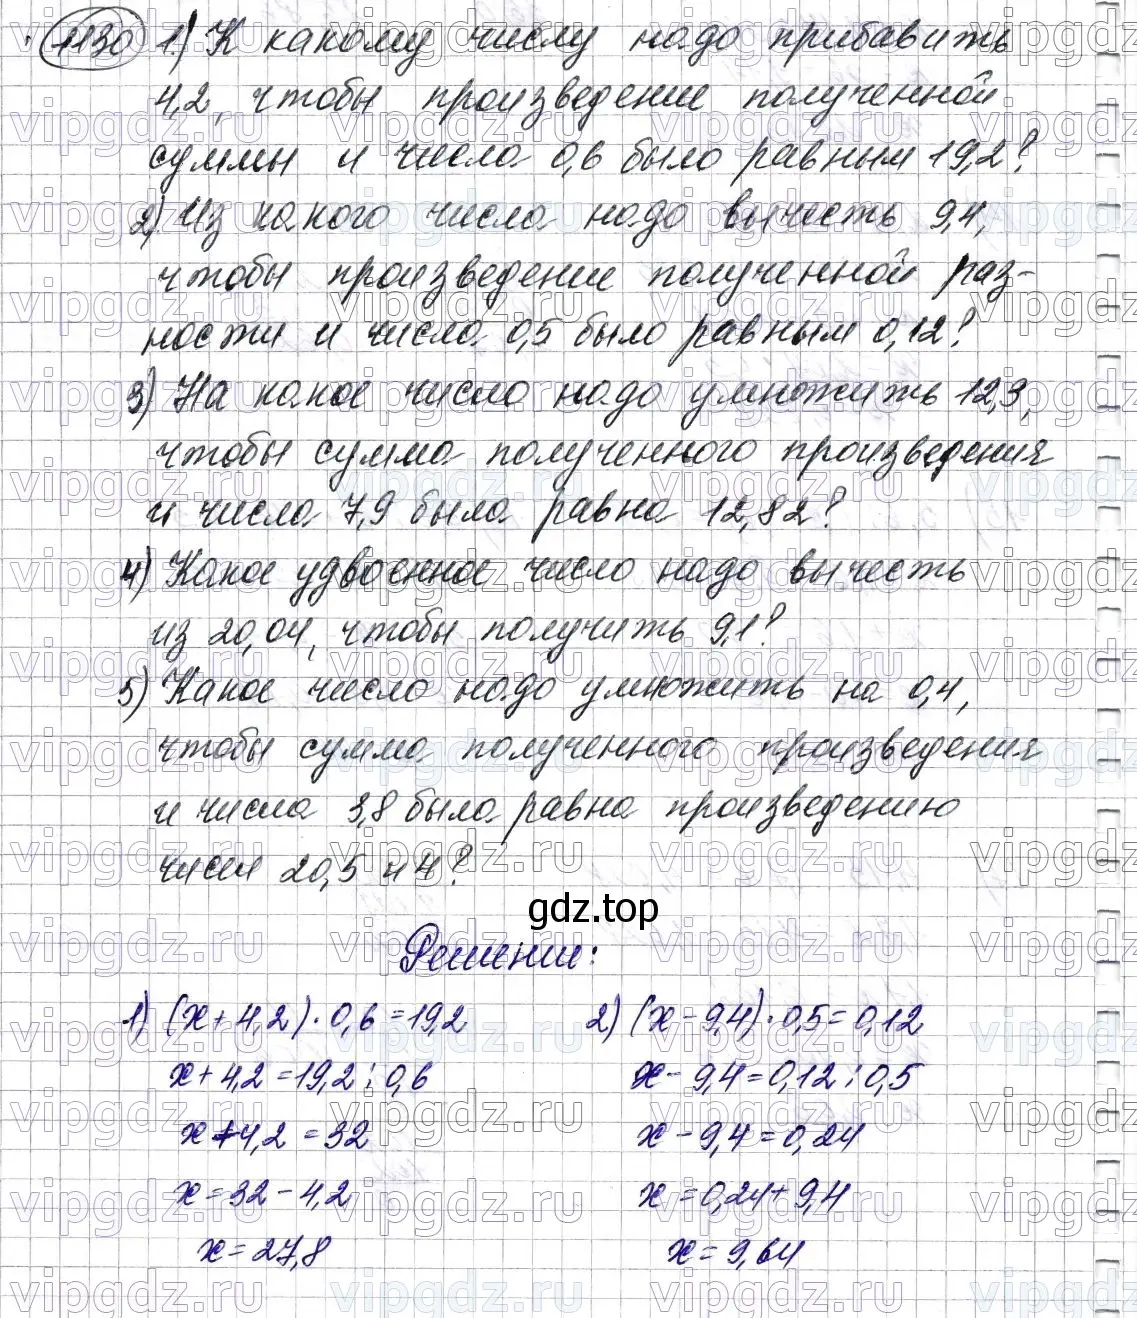 1130 1) К какому числу надо прибавить
4,2, чтобы произведение полученной
суммы и числа 0,6 было равным 19,2?
2) Из какого числа надо вычесть 9,4,
чтобы произведение полученной раз-
ности и числа 0,5 было равным 0,12?
3) На какое число надо умножить 12,3,
чтобы сумма полученного произведения
и числа 7,9 была равна 12,82?
4) Какое удвоенное число надо вычесть
из 20,04, чтобы получить 9,1?
5) Какое число надо умножить на 0,4,
чтобы сумма полученного произведения
и числа 3,8 была равна произведению
чисел 20,5 и 4?
gdz.top
Решение:
1) (x + 4,2) · 0,6 = 19,2
x + 4,2 = 19,2 : 0,6
x + 4,2 = 32
x = 32 - 4,2
x = 27,8
2) (x - 9,4) · 0,5 = 0,12
x - 9,4 = 0,12 : 0,5
x - 9,4 = 0,24
x = 0,24 + 9,4
x = 9,64
vipgdz.ru